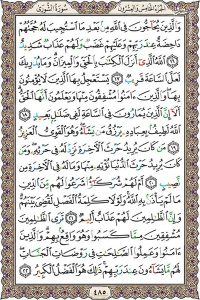 الجزء الخامس والعشرون سورة الشورى
وَالَّذِينَ يُحَاجُّونَ فِي اللَّهِ مِنۢ بَعْدِ مَا اسْتُجِيبَ لَهُۥ حُجَّتُهُمْ
دَاحِضَةٌ عِندَ رَبِّهِمْ وَعَلَيْهِمْ غَضَبٌ وَلَهُمْ عَذَابٌ شَدِيدٌ
١٦ اللَّهُ الَّذِي أَنزَلَ الْكِتَٰبَ بِالْحَقِّ وَالْمِيزَانَ وَمَا يُدْرِيكَ
لَعَلَّ السَّاعَةَ قَرِيبٌ ١٧ يَسْتَعْجِلُ بِهَا الَّذِينَ لَا يُؤْمِنُونَ
بِهَا وَالَّذِينَ ءَامَنُوا مُشْفِقُونَ مِنْهَا وَيَعْلَمُونَ أَنَّهَا الْحَقُّ
أَلَا إِنَّ الَّذِينَ يُمَارُونَ فِي السَّاعَةِ لَفِي ضَلَٰلٍۭ بَعِيدٍ ١٨
اللَّهُ لَطِيفٌۢ بِعِبَادِهِۦ يَرْزُقُ مَن يَشَآءُ وَهُوَ الْقَوِيُّ الْعَزِيزُ
١٩ مَن كَانَ يُرِيدُ حَرْثَ الْءَاخِرَةِ نَزِدْ لَهُۥ فِي حَرْثِهِۦ وَمَن
كَانَ يُرِيدُ حَرْثَ الدُّنْيَا نُؤْتِهِۦ مِنْهَا وَمَا لَهُۥ فِي الْءَاخِرَةِ مِن
نَّصِيبٍ ٢٠ أَمْ لَهُمْ شُرَكَٰٓؤُا شَرَعُوا لَهُم مِّنَ الدِّينِ
مَا لَمْ يَأْذَنۢ بِهِ اللَّهُ وَلَوْلَا كَلِمَةُ الْفَصْلِ لَقُضِيَ بَيْنَهُمْ
وَإِنَّ الظَّٰلِمِينَ لَهُمْ عَذَابٌ أَلِيمٌ ٢١ تَرَى الظَّٰلِمِينَ
مُشْفِقِينَ مِمَّا كَسَبُوا وَهُوَ وَاقِعٌۢ بِهِمْ وَالَّذِينَ
ءَامَنُوا وَعَمِلُوا الصَّٰلِحَٰتِ فِي رَوْضَاتِ الْجَنَّاتِ
لَهُم مَّا يَشَآءُونَ عِندَ رَبِّهِمْ ذَٰلِكَ هُوَ الْفَضْلُ الْكَبِيرُ ٢٢
٤٨٥